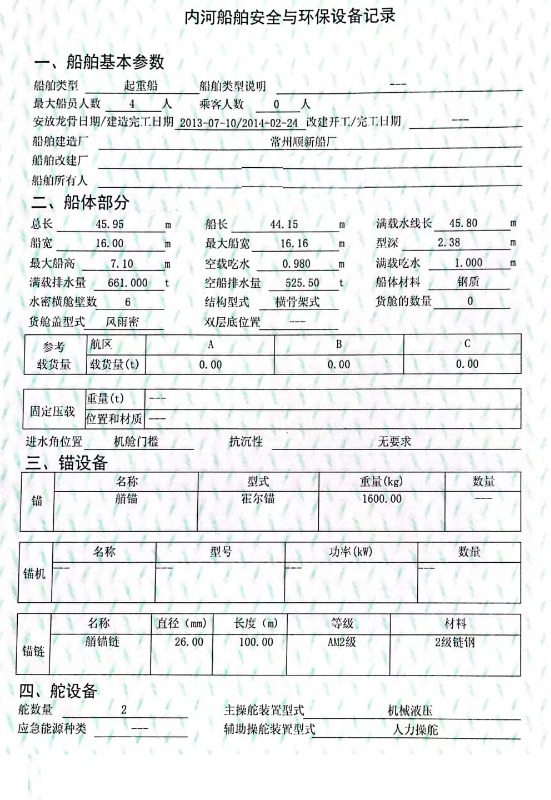 内河船舶安全与环保设备记录
一、船舶基本参数
船舶类型 起重船 船舶类型说明 ---
最大船员人数 4 人 乘客人数 0 人
安放龙骨日期/建造完工日期 2013-07-10/2014-02-24 改建开工/完工日期 ---
船舶建造厂 常州顺新船厂
船舶改建厂
船舶所有人
二、船体部分
总长 45.95 m 船长 44.15 m 满载水线长 45.80 m
船宽 16.00 m 最大船宽 16.16 m 型深 2.38 m
最大船高 7.10 m 空载吃水 0.980 m 满载吃水 1.000 m
满载排水量 661.000 t 空船排水量 525.50 t 船体材料 钢质
水密横舱壁数 6 结构型式 横骨架式 货舱的数量 0
货舱盖型式 风雨密 双层底位置 ---
参考 航区 A B C
载货量 载货量(t) 0.00 0.00 0.00
固定压载 重量(t) ---
位置和材质 ---
进水角位置 机舱门槛 抗沉性 无要求
三、锚设备
名称 型式 重量(kg) 数量
锚 艏锚 霍尔锚 1600.00 ---
名称 型号 功率(kW) 数量
锚机 --- --- --- ---
名称 直径（mm） 长度（m） 等级 材料
锚链 艏锚链 26.00 100.00 AM2级 2级链钢
四、舵设备
舵数量 2 主操舵装置型式 机械液压
应急能源种类 --- 辅助操舵装置型式 人力操舵